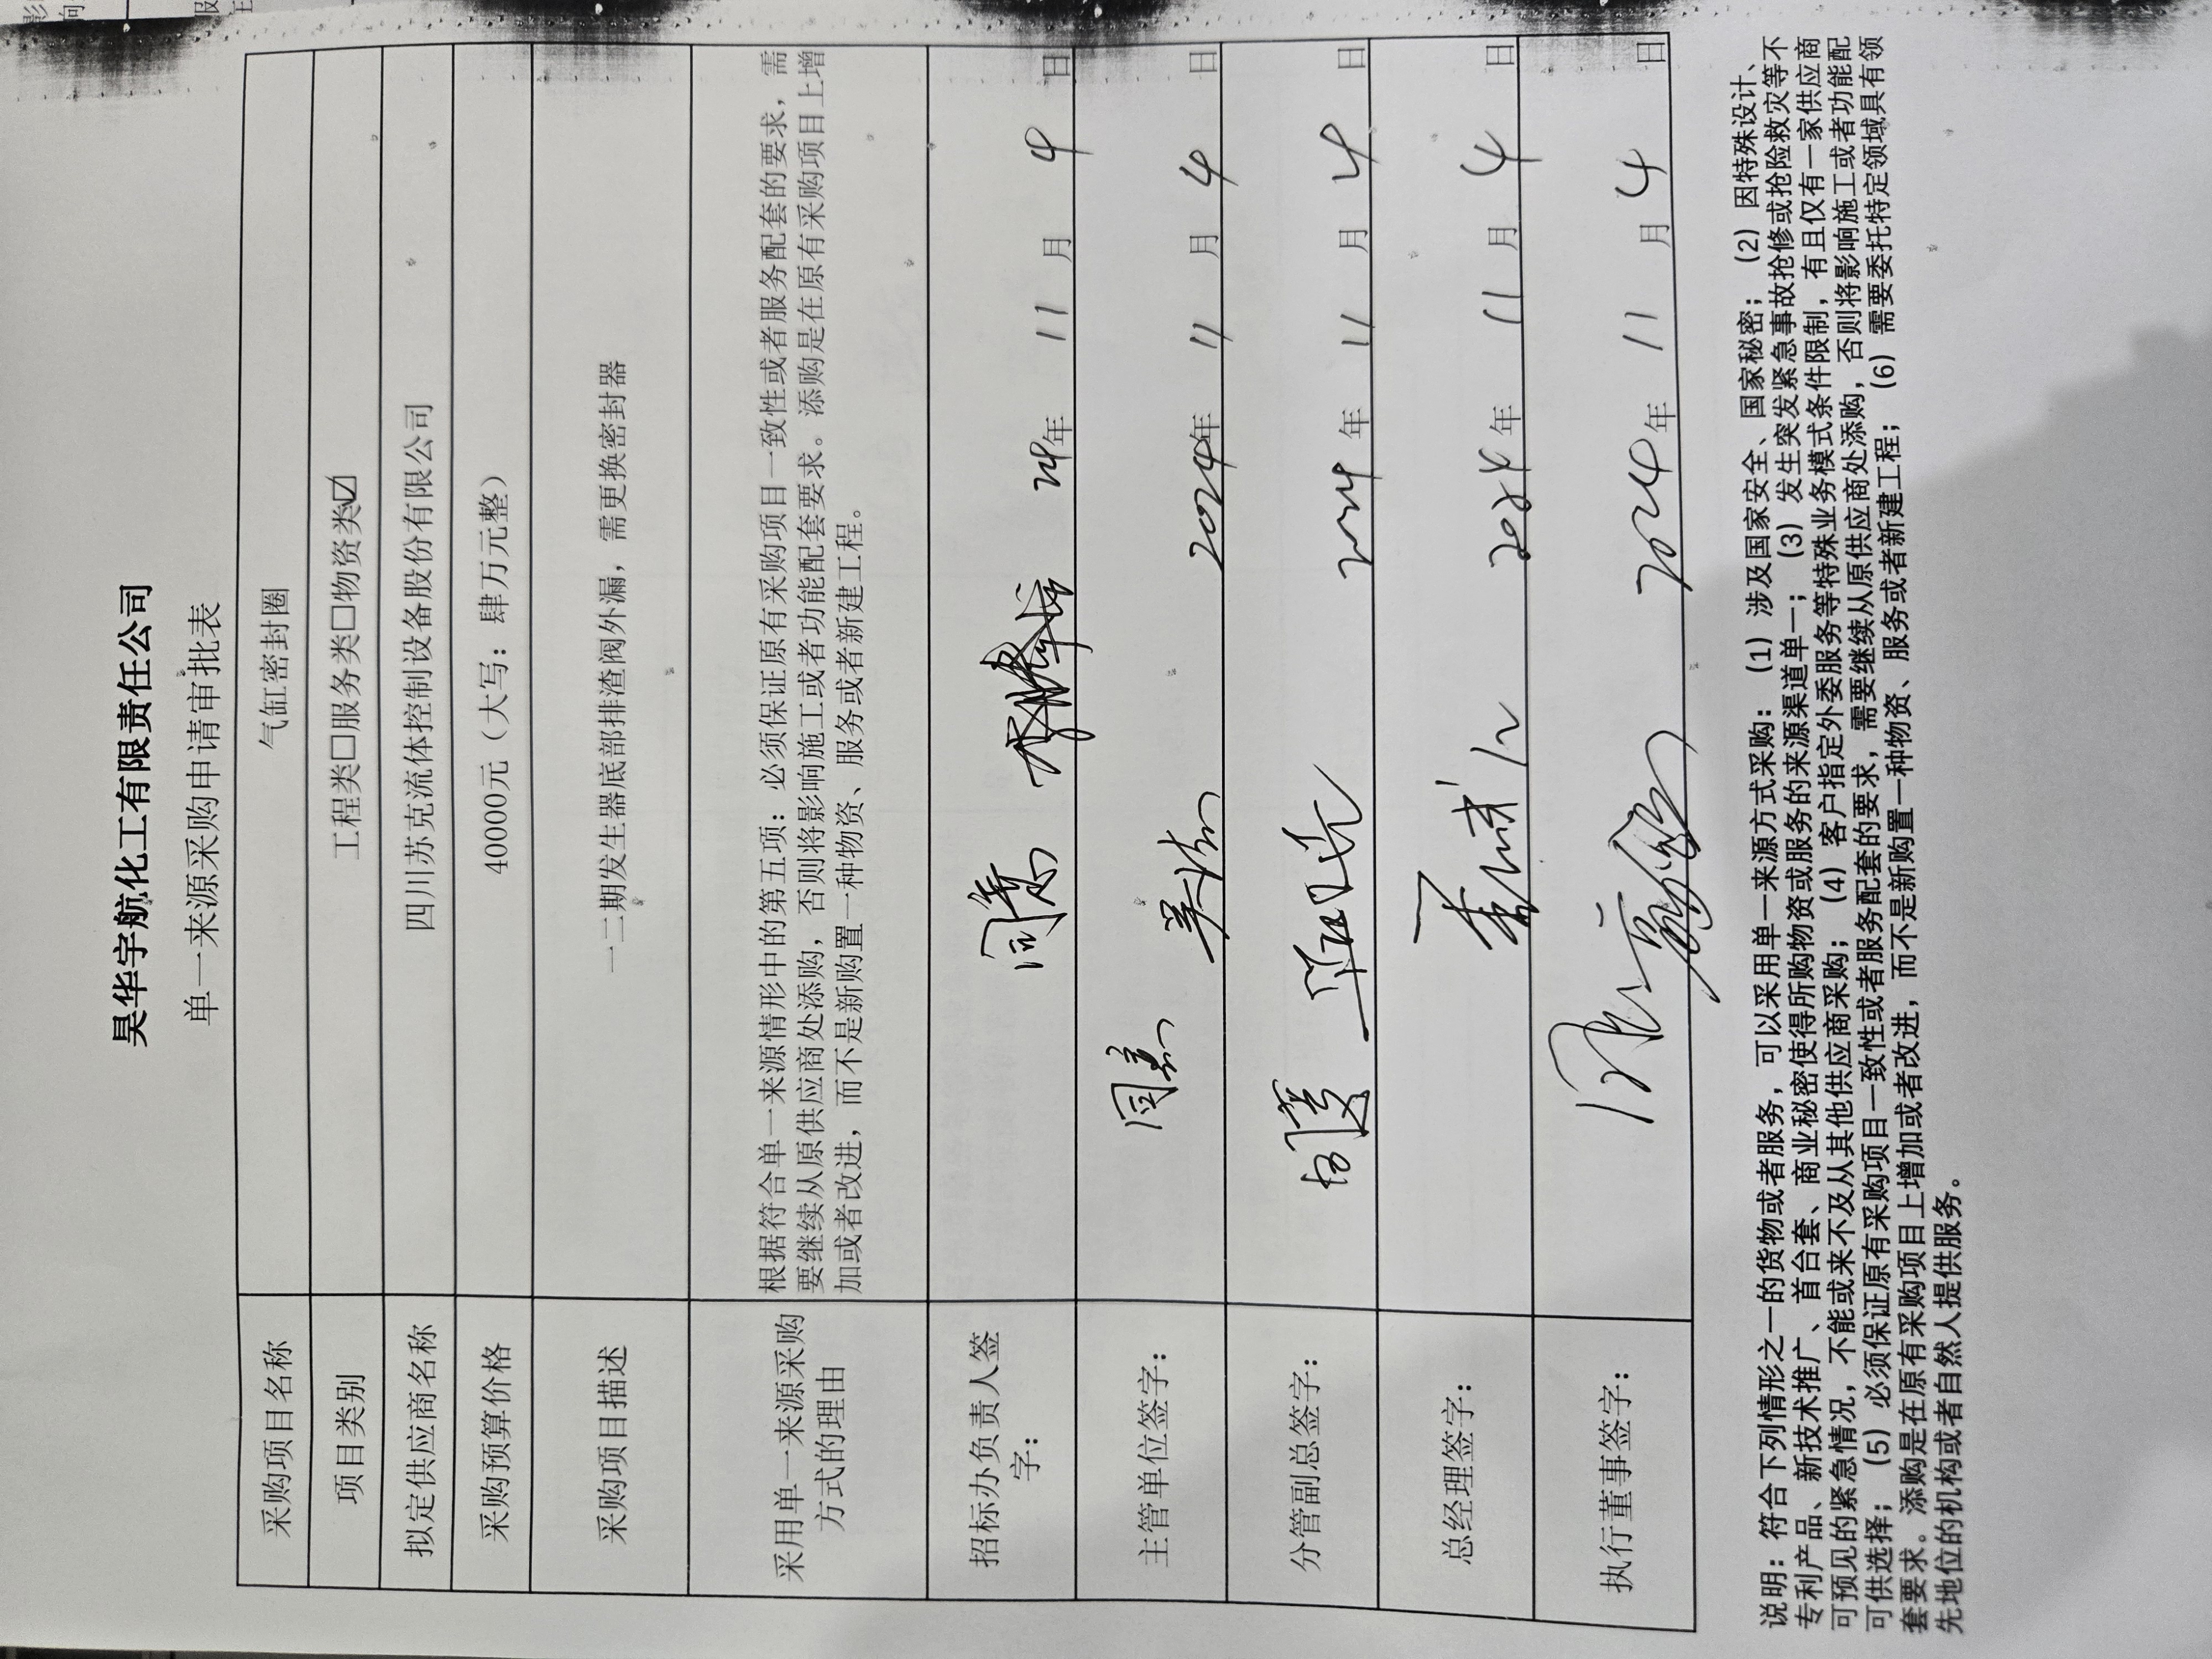 昊华宇航化工有限责任公司
单一来源采购申请审批表
采购项目名称 气缸密封圈
项目类别 工程类□服务类□物资类☑
拟定供应商名称 四川苏克流体控制设备股份有限公司
采购预算价格 40000元（大写：肆万元整）
采购项目描述 一二期发生器底部排渣阀外漏，需更换密封器
采用单一来源采购
方式的理由
根据符合单一来源情形中的第五项：必须保证原有采购项目一致性或者服务配套的要求，需
要继续从原供应商处添购，否则将影响施工或者功能配套要求。添购是在原有采购项目上增
加或者改进，而不是新购置一种物资、服务或者新建工程。
招标办负责人签
字：
24年 11月 4日
主管单位签字：
2024年 11月 4日
分管副总签字：
2024年 11月 4日
总经理签字：
2024年 11月 4日
执行董事签字：
2024年 11月 4日
说明：符合下列情形之一的货物或者服务，可以采用单一来源方式采购：（1）涉及国家安全、国家秘密；（2）因特殊设计、
专利产品、新技术推广、首台套、商业秘密使得所购物资或服务的来源渠道单一；（3）发生突发紧急事故抢修或抢险救灾等不
可预见的紧急情况，不能或来不及从其他供应商采购；（4）客户指定外委服务等特殊业务模式条件限制，有且仅有一家供应商
可供选择；（5）必须保证原有采购项目一致性或者服务配套的要求，需要继续从原供应商处添购，否则将影响施工或者功能配
套要求。添购是在原有采购项目上增加或者改进，而不是新购置一种物资、服务或者新建工程；（6）需要委托特定领域具有领
先地位的机构或者自然人提供服务。